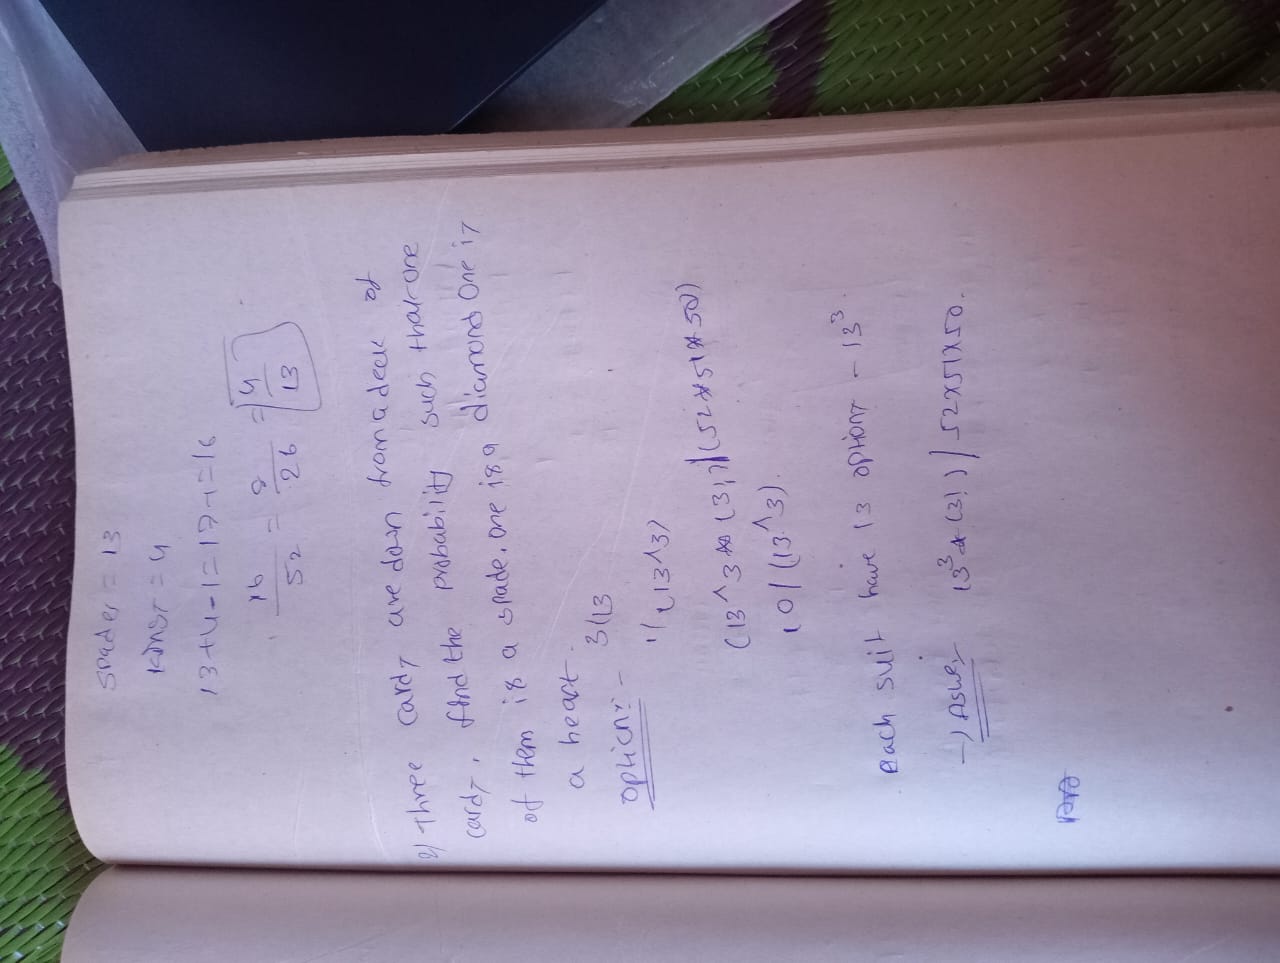 spades = 13
kings = 4
13+4-1=17-1=16
16/52 = 8/26 = 4/13
2) Three cards are down from a deck of
cards, find the probability such that one
of them is a spade, one is a diamond one is
a heart.
option:- 3/13
1/(13^3)
(13^3 * (3!)) / (52*51*50)
10/(13^3).
each suit have 13 options - 13³.
13³ * (3!) / 52x51x50.